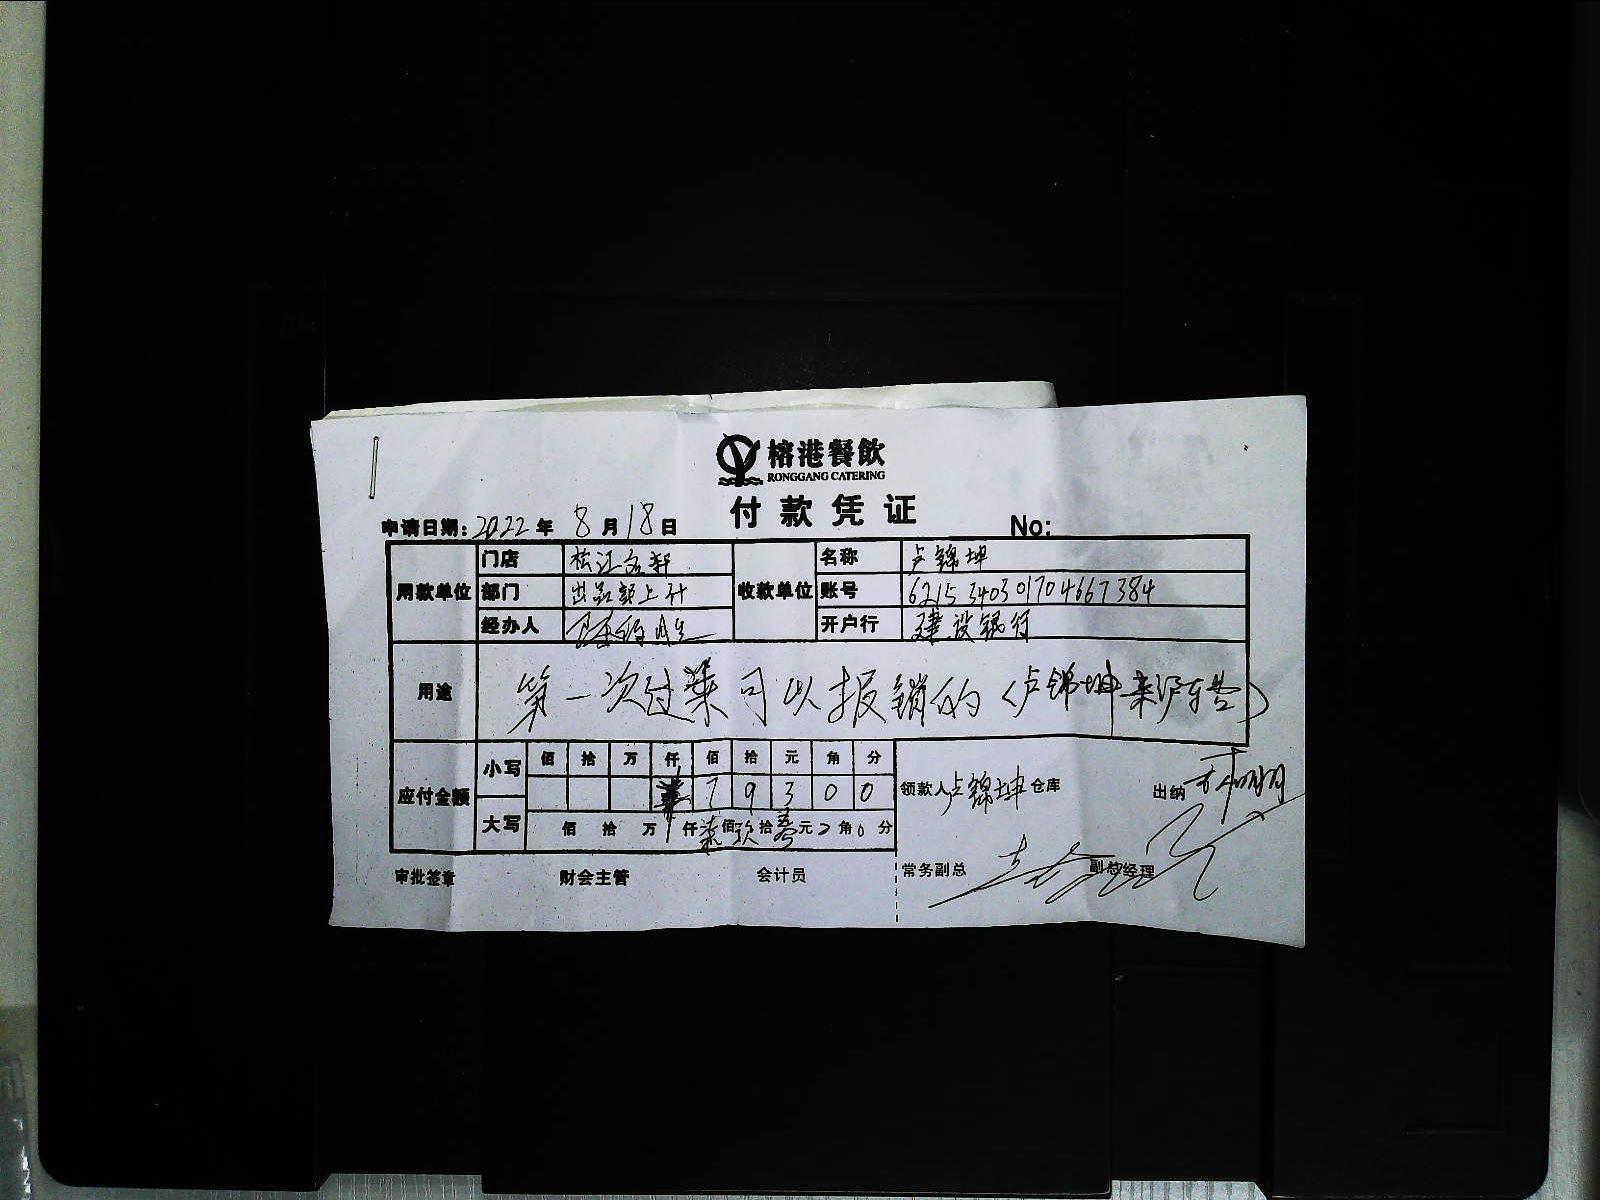 榕港餐飲
RONGGANG CATERING
付款凭证
申请日期:2022年8月18日 No:
用款单位 门店 松江名轩 收款单位 名称 卢锦坤
部门 出品部上什 账号 6215340301704667384
经办人 开户行 建设银行
用途 第一次过来可以报销的(卢锦坤来沪车费)
应付金额 小写 佰 拾 万 仟 佰 拾 元 角 分
7 9 3 0 0
大写 佰 拾 万 仟 柒佰玖拾叁元0角0分
领款人 卢锦坤 仓库 出纳
审批签章 财会主管 会计员 常务副总 副总经理